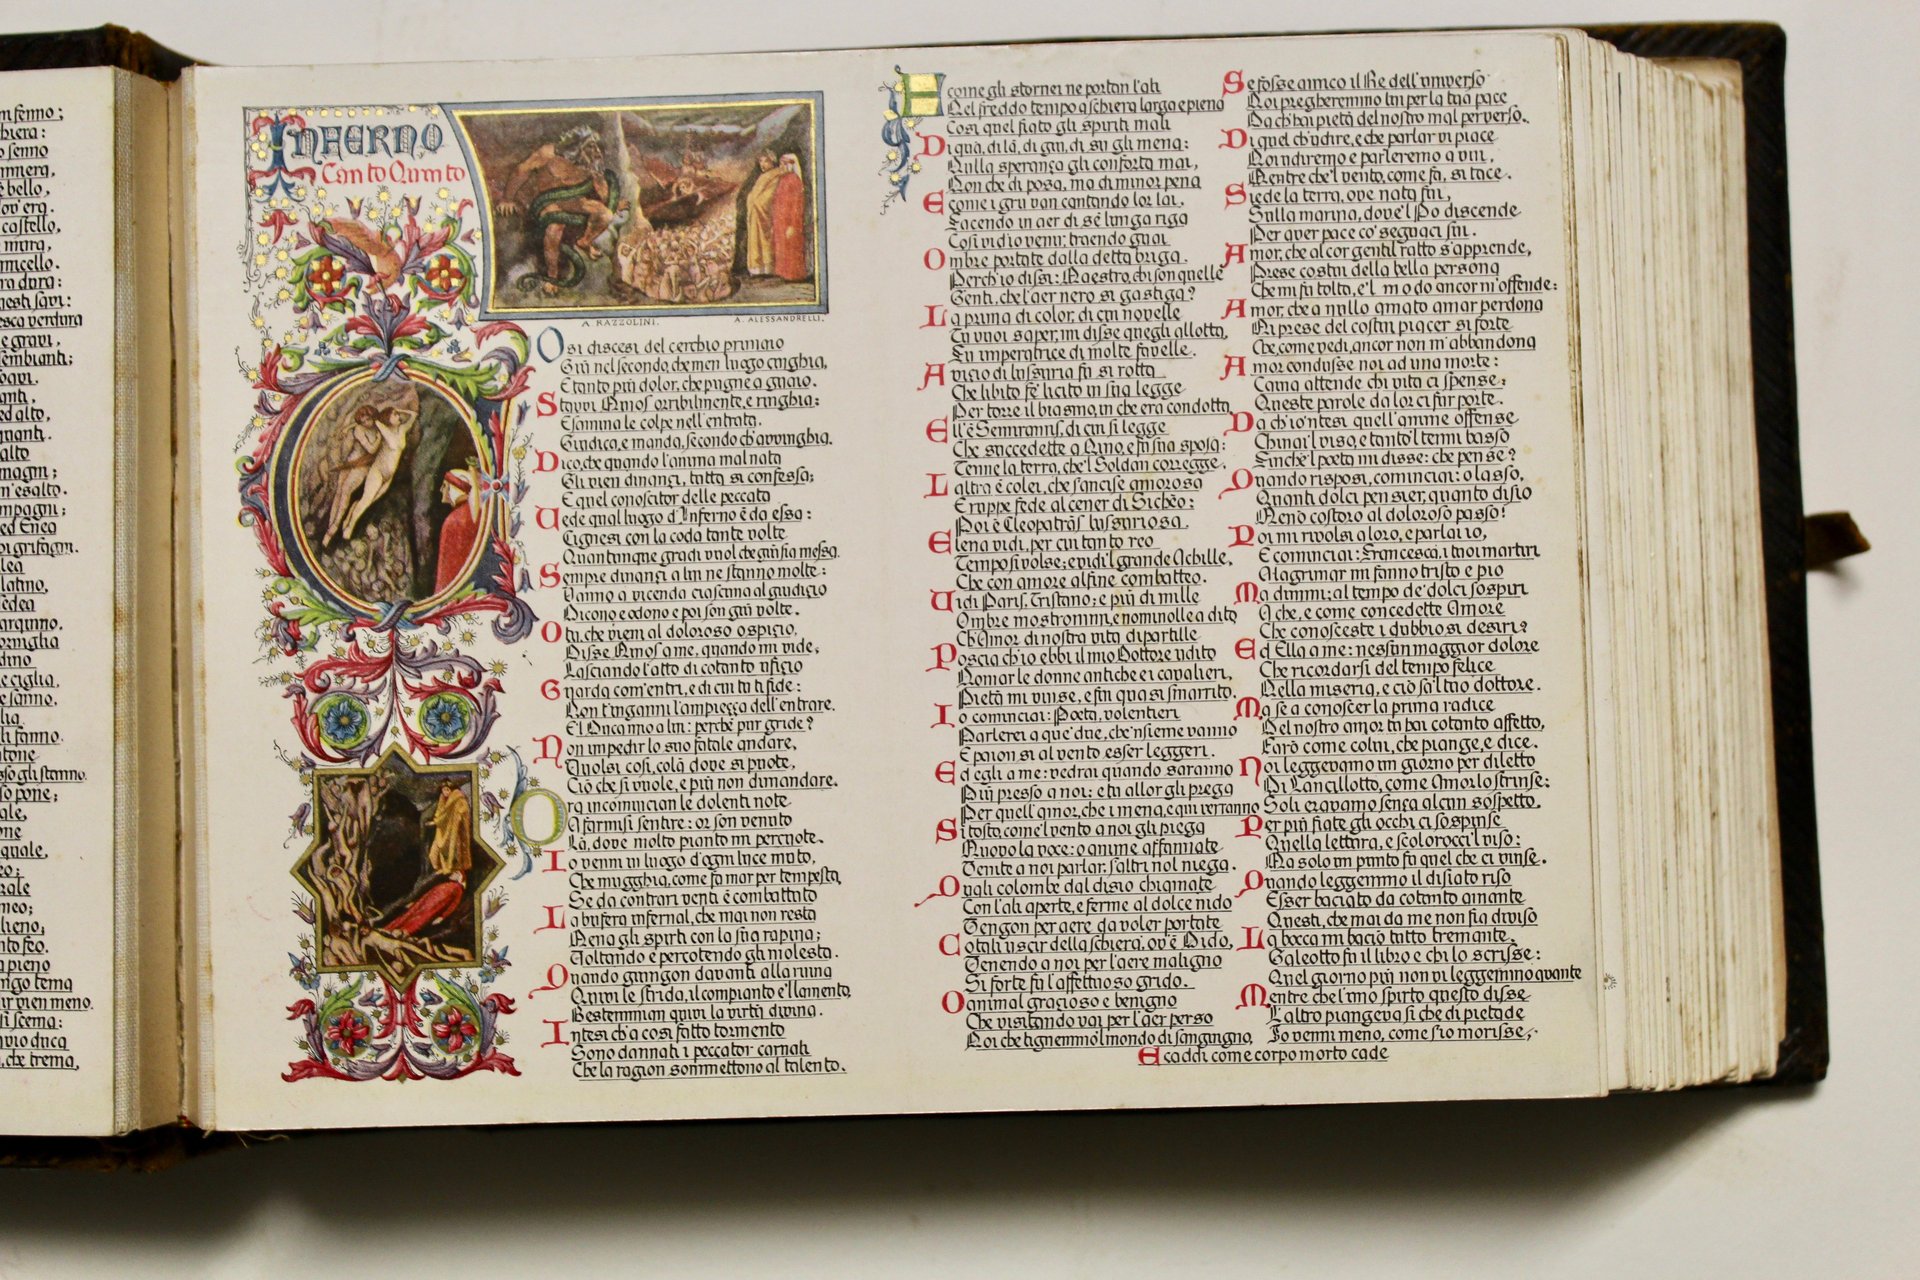 m senno;
hiera:
o senno
nmiera,
e bello,
ov'era.
castello,
mura,
micello.
ra dura:
uesti savi:
esca verdura
e gravi,
sembianti;
oavi.
anti,
ed alto,
quanti.
alto
magni;
m'esalto.
mpagni;
ed Enea
hi grifagni.
lea
latino,
sedea
arquino,
orniglia
dino
e ciglia,
e sanno,
lia.
li fanno.
atone
sso gli stanno.
so pone;
ale,
one
quale,
eo;
rale
neo;
lieno,
nto feo.
a pieno
ngo tema
ir vien meno.
si scema:
avio duca
, che trema,
INFERNO
Canto Quinto
A RAZZOLINI.
A. ALESSANDRELLI.
Osi discesi del cerchio primaio
Giù nel secondo, che men luogo cinghia,
E tanto più dolor, che pugne a guaio.
Stavvi Minos orribilmente, e ringhia:
Esamina le colpe nell'entrata,
Giudica, e manda, secondo ch'avvinghia.
Dico, che quando l'anima mal nata
Gli vien dinanzi, tutta si confessa;
E quel conoscitor delle peccata
Vede qual luogo d'Inferno è da essa:
Cignesi con la coda tante volte
Quantunque gradi vuol che giù sia messa.
Sempre dinanzi a lui ne stanno molte:
Vanno a vicenda ciascuna al giudizio
Dicono e odono e poi son giù volte.
O tu, che vieni al doloroso ospizio,
Disse Minos a me, quando mi vide,
Lasciando l'atto di cotanto ufizio
Guarda com'entri, e di cui tu ti fide:
Non t'inganni l'ampiezza dell'entrare.
E'l Duca mio a lui: perchè pur gride?
Non impedir lo suo fatale andare,
Vuolsi così, colà dove si puote,
Ciò che si vuole, e più non dimandare.
Ora incomincian le dolenti note
A farmisi sentire: or son venuto
Là, dove molto pianto mi percuote.
Io venni in luogo d'ogni luce muto,
Che mugghia, come fa mar per tempesta,
Se da contrari venti è combattuto
La bufera infernal, che mai non resta
Mena gli spirti con la sua rapina;
Voltando e percotendo gli molesta.
Quando giungon davanti alla ruina
Quivi le strida, il compianto e'l lamento,
Bestemmian quivi la virtù divina.
Intesi ch'a così fatto tormento
Sono dannati i peccator carnali
Che la ragion sommettono al talento.
E come gli stornei ne portan l'ali
Nel freddo tempo a schiera larga e piena
Così quel fiato gli spiriti mali
Di qua, di là, di giù, di su gli mena:
Nulla speranza gli conforta mai,
Non che di posa, ma di minor pena
E come i gru van cantando lor lai,
Facendo in aer di sè lunga riga
Così vid'io venir, traendo guai
Ombre portate dalla detta briga.
Perch'io dissi: Maestro, chi son quelle
Genti, che l'aer nero si gastiga?
La prima di color, di cui novelle
Tu vuoi saper, mi disse quegli allotta,
Fu imperatrice di molte favelle.
A vizio di lussuria fu sì rotta
Che libito fe' licito in sua legge
Per torre il biasmo, in che era condotta.
Ell'è Semiramis, di cui si legge
Che succedette a Nino, e fu sua sposa:
Tenne la terra, che'l Soldan corregge.
L'altra è colei, che s'ancise amorosa
E ruppe fede al cener di Sichèo:
Poi è Cleopatràs lussuriosa.
Elena vidi, per cui tanto reo
Tempo si volse; e vidi'l grande Achille,
Che con amore al fine combatteo.
Vidi Paris, Tristano; e più di mille
Ombre mostrommi, e nominolle a dito
Ch'Amor di nostra vita dipartille
Poscia ch'io ebbi il mio Dottore udito
Nomar le donne antiche e i cavalieri,
Pietà mi vinse, e fui quasi smarrito.
Io cominciai: Poeta, volentieri
Parlerei a que' due, che'nsieme vanno
E paion sì al vento esser leggeri.
Ed egli a me: vedrai quando saranno
Più presso a noi: e tu allor gli prega
Per quell'amor, che i mena, e qui verranno
Sì tosto, come'l vento a noi gli piega
Muovo la voce: o anime affannate
Venite a noi parlar, s'altri nol niega.
Quali colombe dal disio chiamate
Con l'ali aperte, e ferme al dolce nido
Vengon per aere da voler portate
Cotali uscir della schiera, ov'è Dido,
Venendo a noi per l'aere maligno
Sì forte fu l'affettuoso grido.
O animal grazioso e benigno
Che visitando vai per l'aer perso
Noi che tignemmo'l mondo di sanguigno,
Se fosse amico il Re dell'universo
Noi pregheremmo lui per la tua pace
Da ch'hai pietà del nostro mal perverso.
Di quel ch'udire, e che parlar vi piace
Noi udiremo e parleremo a vui,
Mentre che'l vento, come fa, si tace.
Siede la terra, ove nata fui,
Sulla marina, dove'l Po discende
Per aver pace co' seguaci sui.
Amor, che al cor gentil ratto s'apprende,
Prese costui della bella persona
Che mi fu tolta, e'l modo ancor m'offende:
Amor, che a nullo amato amar perdona
Mi prese del costui piacer sì forte
Che, come vedi, ancor non m'abbandona
Amor condusse noi ad una morte:
Caina attende chi vita ci spense:
Queste parole da lor ci fur porte.
Da ch'io 'ntesi quell'anime offense
Chinai'l viso, e tanto'l tenni basso
Finchè'l poeta mi disse: che pense?
Quando risposi, cominciai: o lasso,
Quanti dolci pensier, quanto disio
Menò costoro al doloroso passo!
Poi mi rivolsi a loro, e parlai io,
E cominciai: Francesca, i tuoi martiri
A lagrimar mi fanno tristo e pio
Ma dimmi: al tempo de' dolci sospiri
A che, e come concedette Amore
Che conosceste i dubbiosi desiri?
Ed Ella a me: nessun maggior dolore
Che ricordarsi del tempo felice
Nella miseria, e ciò sa'l tuo dottore.
Ma se a conoscer la prima radice
Del nostro amor tu hai cotanto affetto,
Farò come colui, che piange, e dice.
Noi leggevamo un giorno per diletto
Di Lancillotto, come Amor lo strinse:
Soli eravamo senza alcun sospetto.
Per più fiate gli occhi ci sospinse
Quella lettura, e scolorocci'l viso:
Ma solo un punto fu quel che ci vinse.
Quando leggemmo il disiato riso
Esser baciato da cotanto amante
Questi, che mai da me non fia diviso
La bocca mi baciò tutto tremante.
Galeotto fu il libro e chi lo scrisse:
Quel giorno più non vi leggemmo avante
Mentre che l'uno spirto questo disse
L'altro piangeva sì che di pietade
Io venni meno, come s'io morisse,
E caddi come corpo morto cade